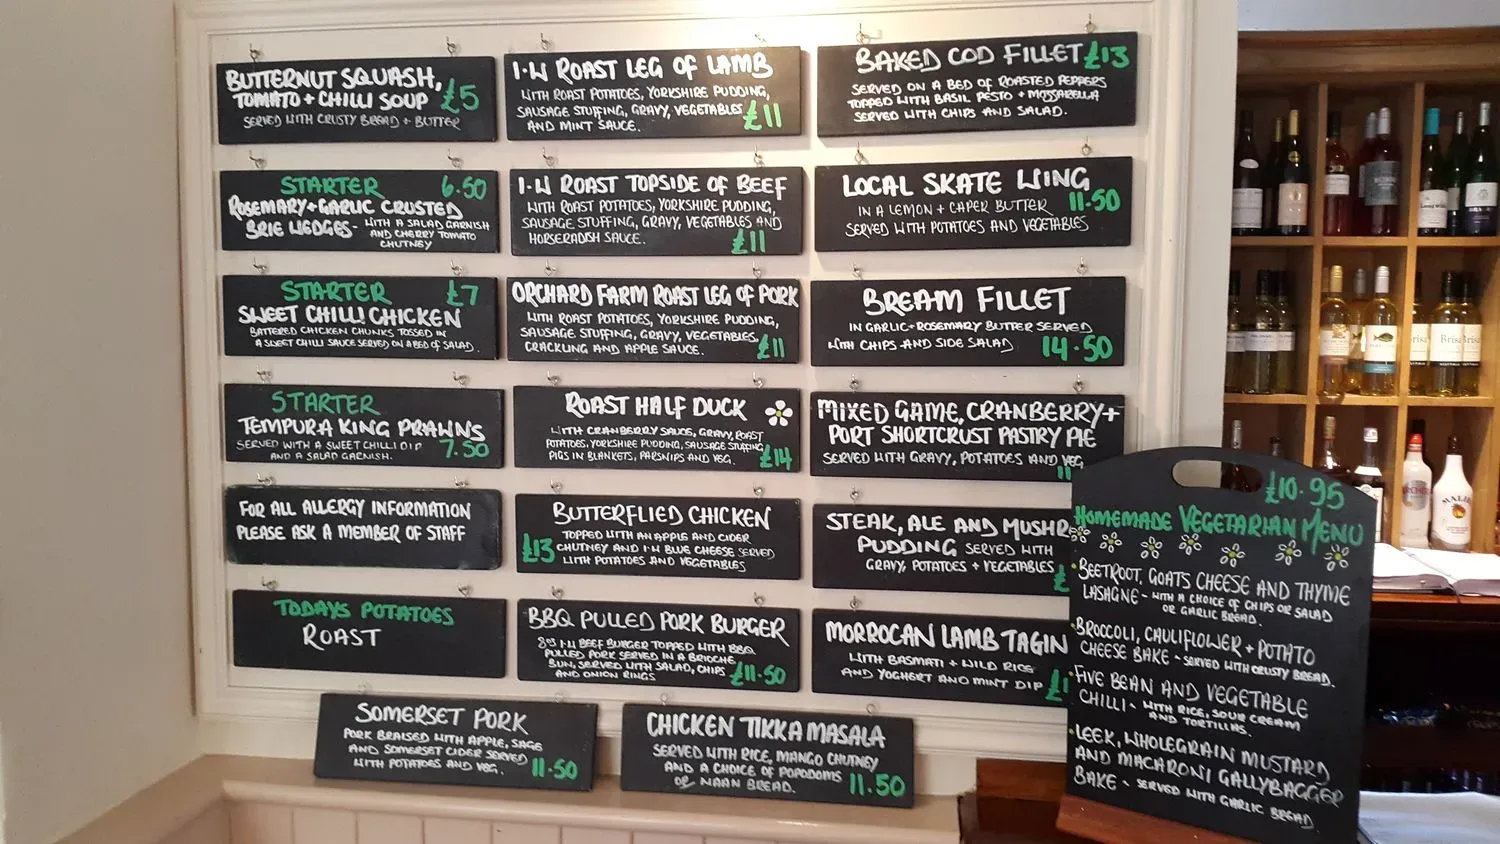 BUTTERNUT SQUASH,
TOMATO + CHILLI SOUP £5
SERVED WITH CRUSTY BREAD + BUTTER
STARTER 6.50
ROSEMARY + GARLIC CRUSTED
BRIE WEDGES - WITH A SALAD GARNISH
AND CHERRY TOMATO
CHUTNEY
STARTER £7
SWEET CHILLI CHICKEN
BATTERED CHICKEN CHUNKS TOSSED IN
A SWEET CHILLI SAUCE SERVED ON A BED OF SALAD.
STARTER
TEMPURA KING PRAWNS
SERVED WITH A SWEET CHILLI DIP 7.50
AND A SALAD GARNISH.
FOR ALL ALLERGY INFORMATION
PLEASE ASK A MEMBER OF STAFF
TODAYS POTATOES
ROAST
I.W ROAST LEG OF LAMB
WITH ROAST POTATOES, YORKSHIRE PUDDING,
SAUSAGE STUFFING, GRAVY, VEGETABLES £11
AND MINT SAUCE.
I.W ROAST TOPSIDE OF BEEF
WITH ROAST POTATOES, YORKSHIRE PUDDING,
SAUSAGE STUFFING, GRAVY, VEGETABLES AND
HORSERADISH SAUCE. £11
ORCHARD FARM ROAST LEG OF PORK
WITH ROAST POTATOES, YORKSHIRE PUDDING,
SAUSAGE STUFFING, GRAVY, VEGETABLES,
CRACKLING AND APPLE SAUCE. £11
ROAST HALF DUCK
WITH CRANBERRY SAUCE, GRAVY, ROAST
POTATOES, YORKSHIRE PUDDING, SAUSAGE STUFFING
PIGS IN BLANKETS, PARSNIPS AND VEG. £14
BUTTERFLIED CHICKEN
TOPPED WITH AN APPLE AND CIDER
£13 CHUTNEY AND I.W BLUE CHEESE SERVED
WITH POTATOES AND VEGETABLES
BBQ PULLED PORK BURGER
8oz I.W BEEF BURGER TOPPED WITH BBQ
PULLED PORK SERVED IN A BRIOCHE
BUN, SERVED WITH SALAD, CHIPS
AND ONION RINGS £11.50
BAKED COD FILLET £13
SERVED ON A BED OF ROASTED PEPPERS
TOPPED WITH BASIL PESTO + MOZZARELLA
SERVED WITH CHIPS AND SALAD.
LOCAL SKATE WING
IN A LEMON + CAPER BUTTER 11.50
SERVED WITH POTATOES AND VEGETABLES
BREAM FILLET
IN GARLIC + ROSEMARY BUTTER SERVED
WITH CHIPS AND SIDE SALAD 14.50
MIXED GAME, CRANBERRY +
PORT SHORTCRUST PASTRY PIE
SERVED WITH GRAVY, POTATOES AND VEG
11
STEAK, ALE AND MUSHR
PUDDING SERVED WITH
GRAVY, POTATOES + VEGETABLES £
MORROCAN LAMB TAGIN
WITH BASMATI + WILD RICE
AND YOGHERT AND MINT DIP £1
SOMERSET PORK
PORK BRAISED WITH APPLE, SAGE
AND SOMERSET CIDER SERVED
WITH POTATOES AND VEG. 11.50
CHICKEN TIKKA MASALA
SERVED WITH RICE, MANGO CHUTNEY
AND A CHOICE OF POPODOMS
OR NAAN BREAD. 11.50
£10.95
HOMEMADE VEGETARIAN MENU
• BEETROOT, GOATS CHEESE AND THYME
LASAGNE - WITH A CHOICE OF CHIPS OR SALAD
OR GARLIC BREAD.
• BROCCOLI, CAULIFLOWER + POTATO
CHEESE BAKE - SERVED WITH CRUSTY BREAD.
• FIVE BEAN AND VEGETABLE
CHILLI - WITH RICE, SOUR CREAM
AND TORTILLAS.
• LEEK, WHOLEGRAIN MUSTARD
AND MACARONI GALLYBAGGER
BAKE - SERVED WITH GARLIC BREAD.